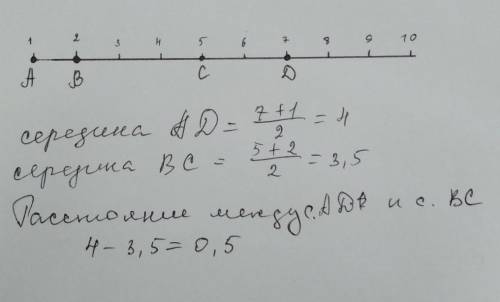 1 2 3 4 5 6 7 8 9 10
A B C D
середина AD = 7+1/2 = 4
середина BC = 5+2/2 = 3,5
Расстояние между с. AD и с. BC
4 - 3,5 = 0,5